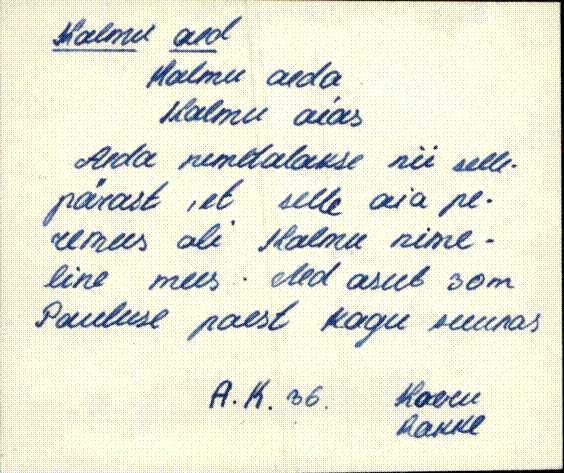 Kalmu aed
Kalmu aeda
Kalmu aias
Aeda nimetatakse nii selle-
pärast, et selle aia pe-
remees oli Kalmu nime-
line mees. Aed asub 30m
Pauluse paest kagu suunas
A.K. 36. Koeru
Rakke